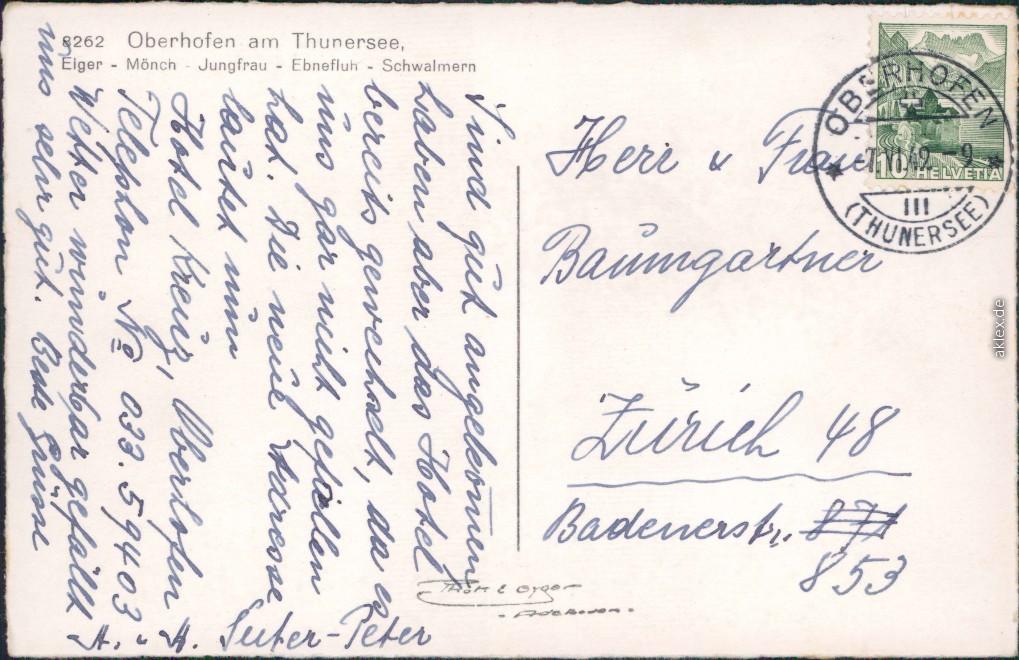 8262 Oberhofen am Thunersee,
Eiger - Mönch - Jungfrau - Ebnefluh - Schwalmern
Sind gut angekommen
haben aber das Hotel
bereits gewechselt, da es
uns gar nicht gefallen
hat. Die neue Adresse
lautet nun
Hotel Kreuz, Oberhofen
Telephon No 033.59403
Wetter wunderbar gefällt
uns sehr gut. Beste Grüsse
A. u. H. Suter-Peter
Herr u Frau
Baumgartner
Zürich 48
Badenerstr. 871
853
OBERHOFEN
49 9
III
(THUNERSEE)
10 HELVETIA
aklex.de